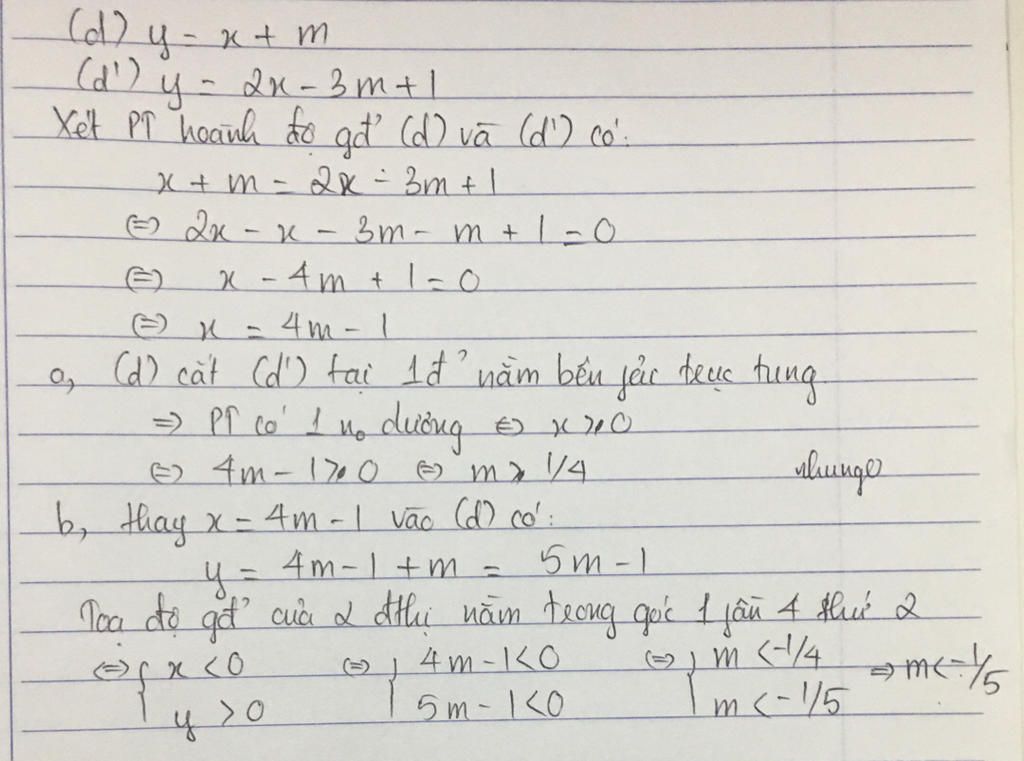 (d) y = x + m
(d') y = 2x - 3m + 1
Xét PT hoành độ gđ' (d) và (d') có:
x + m = 2x - 3m + 1
⇔ 2x - x - 3m - m + 1 = 0
⇔ x - 4m + 1 = 0
⇔ x = 4m - 1
a, (d) cắt (d') tại 1đ' nằm bến fải trục tung
⇒ PT có 1 no dương ⇔ x > 0
⇔ 4m - 1 > 0 ⇔ m > 1/4
nhung
b, thay x = 4m - 1 vào (d) có:
y = 4m - 1 + m = 5m - 1
Toạ độ gđ' của 2 đthị nằm trong góc 1 fần 4 thứ 2
⇔ { x < 0 ⇔ { 4m - 1 < 0 ⇔ { m < -1/4 ⇒ m < -1/5
y > 0 5m - 1 < 0 m < -1/5